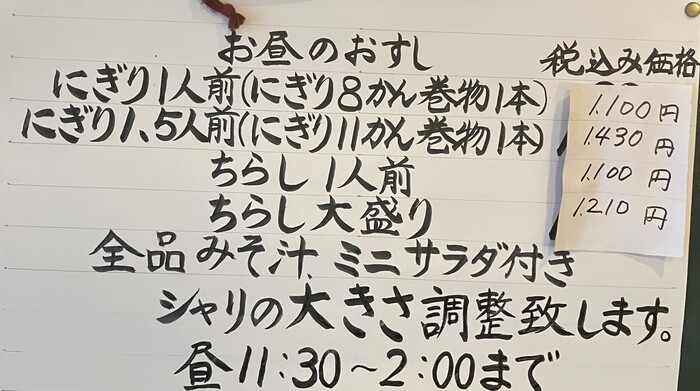 お昼のおすし 税込み価格
にぎり1人前(にぎり8かん巻物1本) 1.100円
にぎり1.5人前(にぎり11かん巻物1本) 1.430円
ちらし1人前 1.100円
ちらし大盛り 1.210円
全品みそ汁、ミニサラダ付き
シャリの大きさ調整致します。
昼11:30~2:00まで